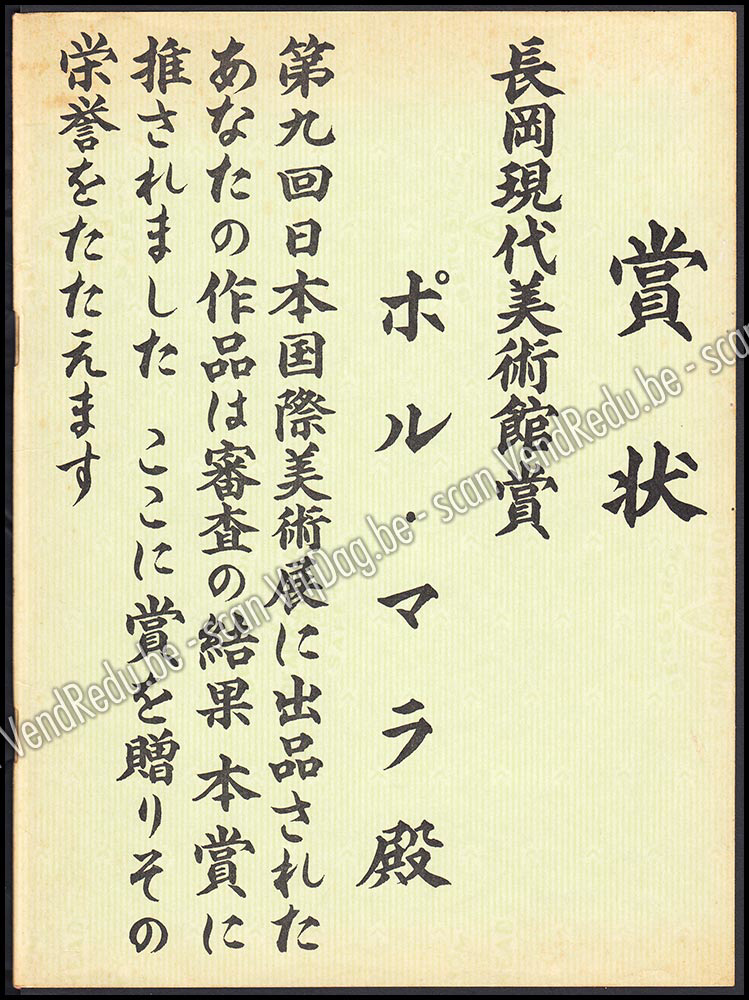 賞状
長岡現代美術館賞
ポル・マラ殿
第九回日本国際美術展に出品された
あなたの作品は審査の結果本賞に
推されました ここに賞を贈りその
栄誉をたたえます
VendRedu.be - scan VrijDag.be - scan VendRedu.be - scan